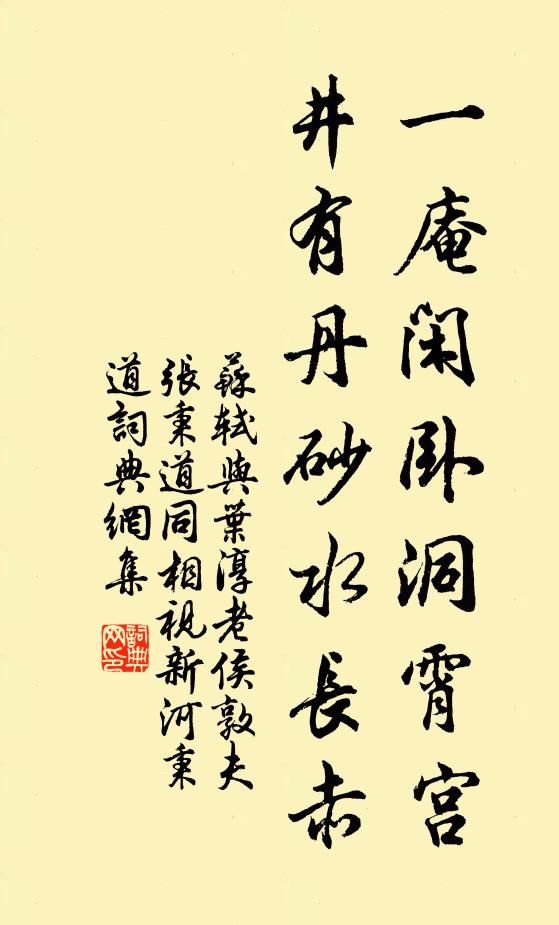 一庵閑卧洞霄宫
井有丹砂水長赤
蘇軾與葉淳老侯敦夫
張秉道同相視新河秉
道詞典網集
詞典
网印